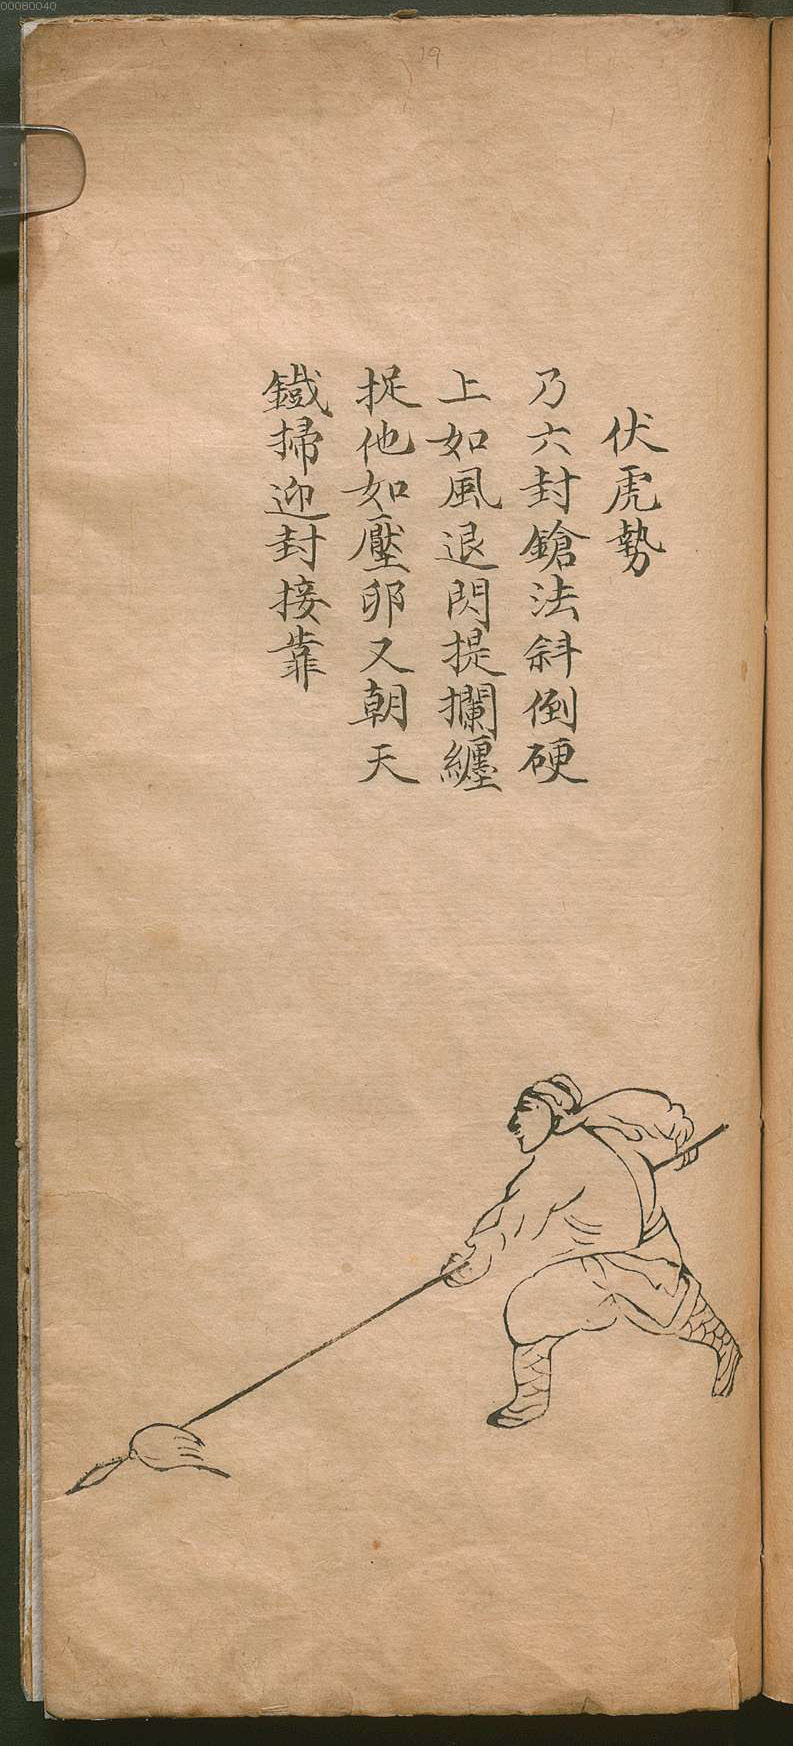 00080040
19
伏虎勢
乃六封鎗法斜倒硬
上如風退閃提攔纏
捉他如壓卵又朝天
鐡掃迎封接靠